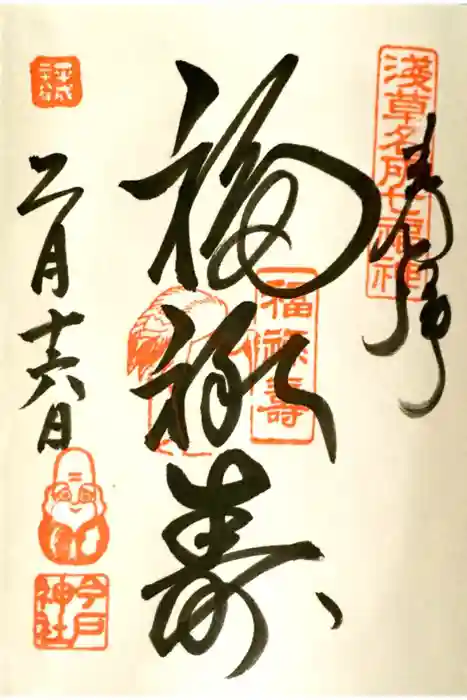 奉拝
淺草名所七福神
福禄寿
福禄壽
平成
二月十六日
今戸神社